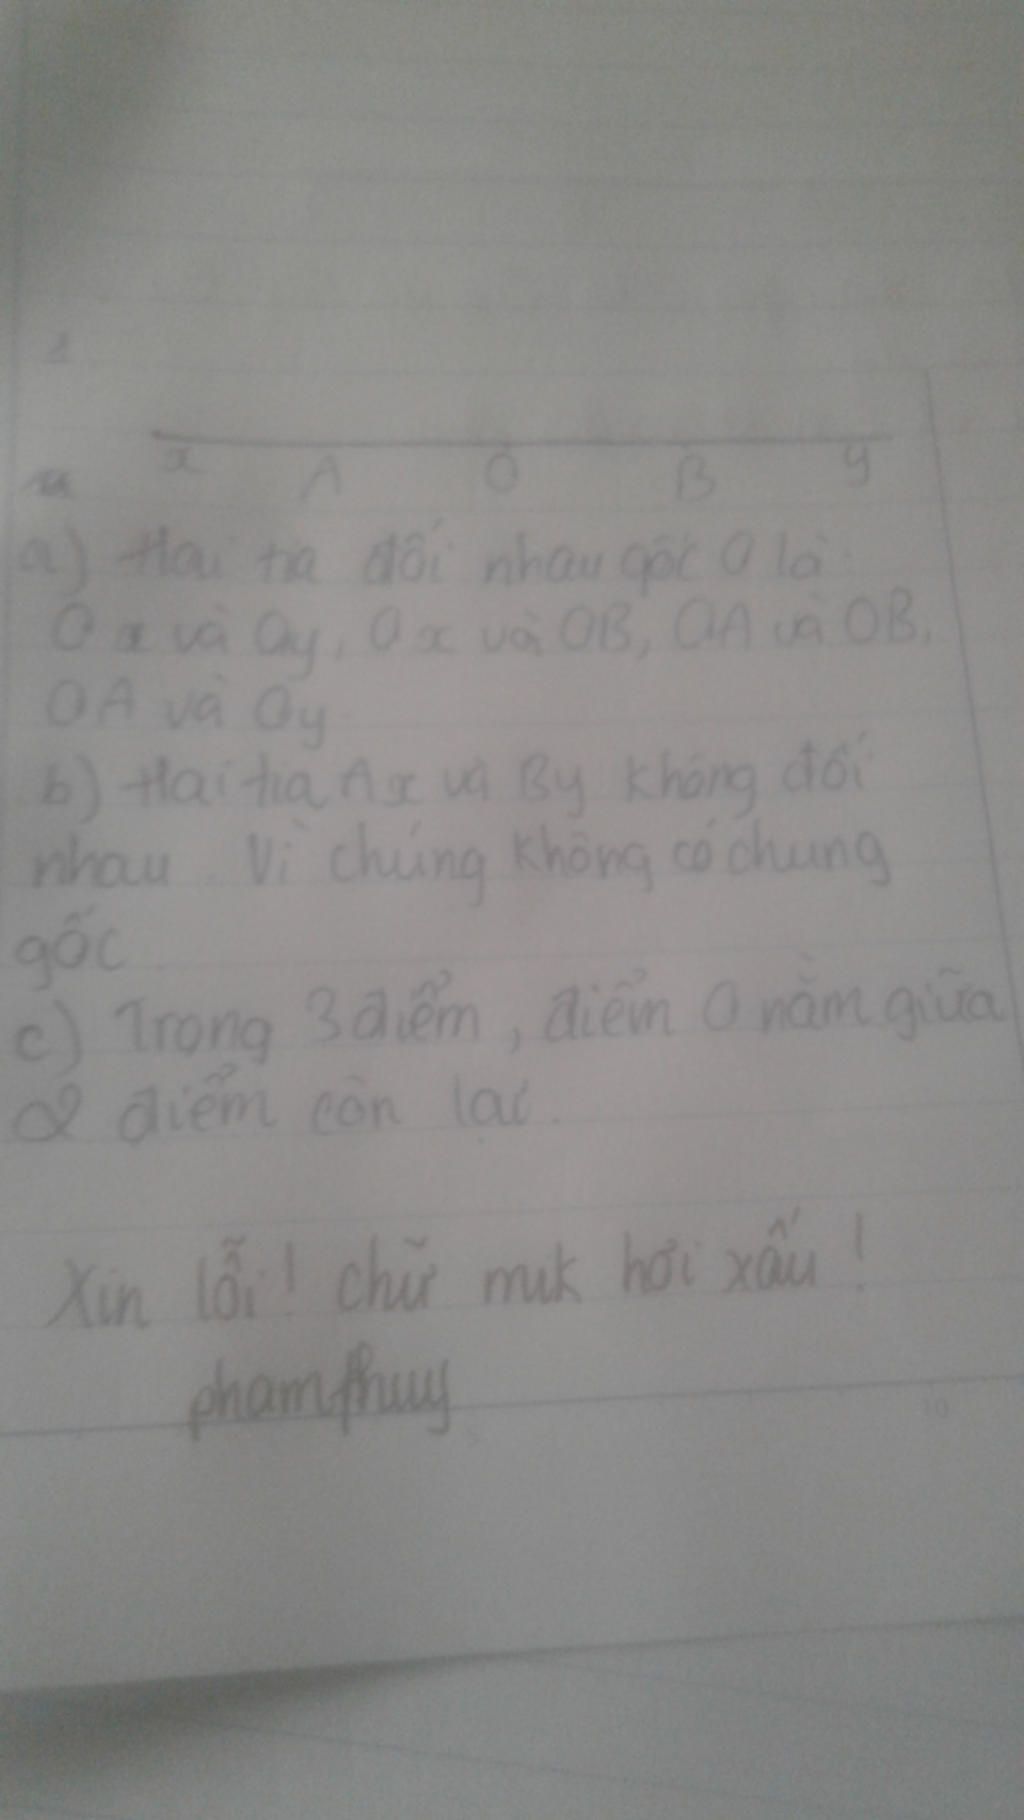 x A O B y
a) Hai tia đối nhau gốc O là:
Ox và Oy, Ox và OB, OA và OB,
OA và Oy
b) Hai tia Ax và By không đối
nhau. Vì chúng không có chung
gốc
c) Trong 3 điểm, điểm O nằm giữa
2 điểm còn lại.
Xin lỗi! chữ mik hơi xấu!
phamthuy